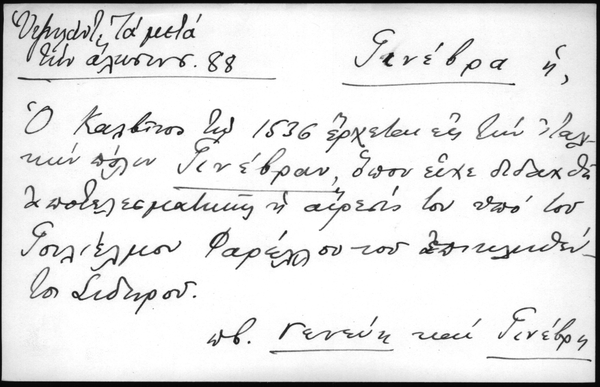 Ὑψηλάντ., Τὰ μετὰ
τὴν ἅλωσιν σ. 88
Γινέβρα ἡ,
Ὁ Καλβῖνος τῷ 1536 ἔρχεται εἰς τὴν Ἰταλι-
κὴν πόλιν Γινέβραν, ὅπου εἶχε διδαχθῆ
ἀποτελεσματικῶς ἡ αἵρεσίς του ὑπὸ τοῦ
Γουλιέλμου Φαρέλλου τοῦ ἐπικληθέν-
τος Σιδηροῦ.
πβ. Γενεύη καὶ Γινέβρη